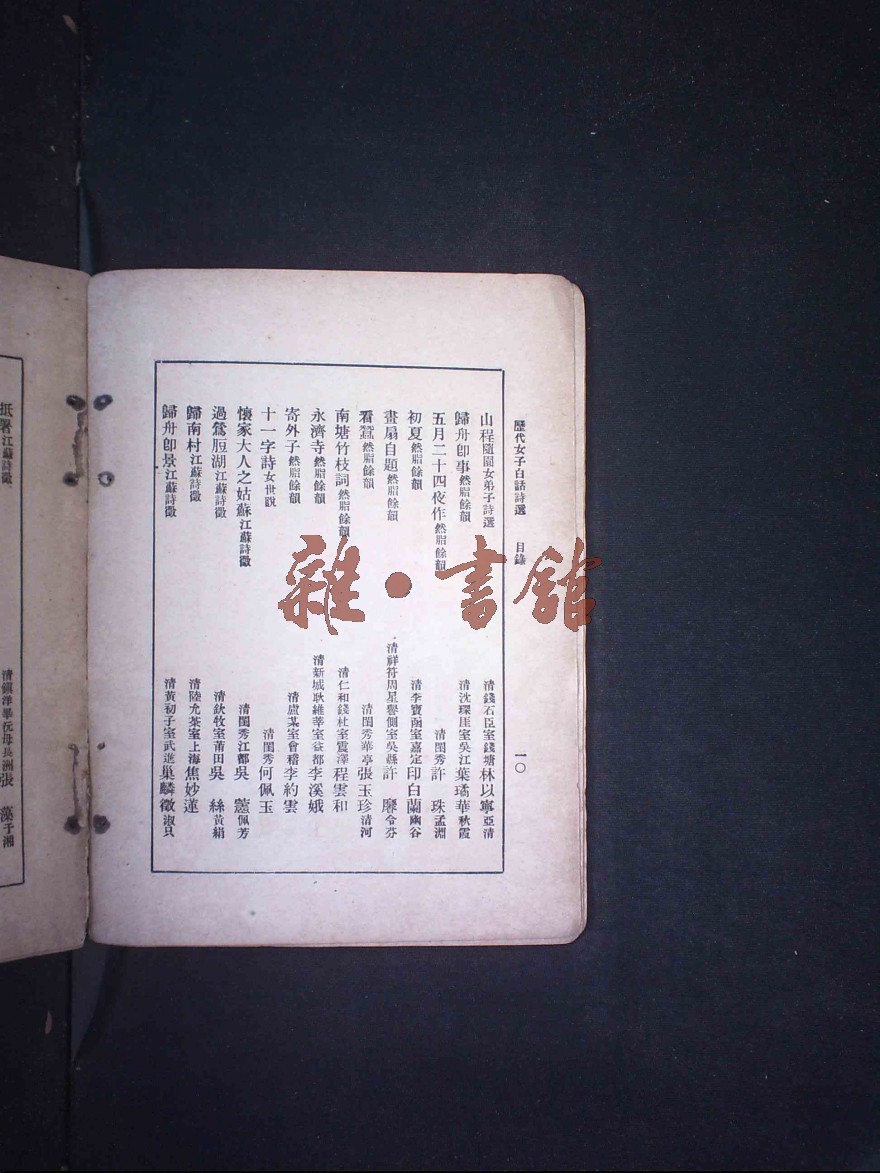 歷代女子白話詩選　目錄　一〇
山程隨園女弟子詩選　清錢石臣室錢塘林以寧亞清
歸舟卽事然脂餘韻　清沈璟厓室吳江葉璚華秋霞
五月二十四夜作然脂餘韻　清閨秀許　珠孟淵
初夏然脂餘韻　清李寶函室嘉定印白蘭幽谷
畫扇自題然脂餘韻　清祥符周星譽側室吳縣許　縻令芬
看蠶然脂餘韻　清閨秀華亭張玉珍清河
南塘竹枝詞然脂餘韻　清仁和錢杜室震澤程雲和
永濟寺然脂餘韻　清新城耿維莘室益都李溪娥
寄外子然脂餘韻　清盧某室會稽李約雲
十一字詩女世說　清閨秀何佩玉
懷家大人之姑蘇江蘇詩徵　清閨秀江都吳　藼佩芳
過鶯脰湖江蘇詩徵　清欽牧室莆田吳　絲黃絹
歸南村江蘇詩徵　清陸允茶室上海焦妙蓮
歸舟卽景江蘇詩徵　清黃初子室武進巢麟徵淑只
抵署江蘇詩徵　清鎭洋畢沅母長洲張　藻于湘
雜·書館